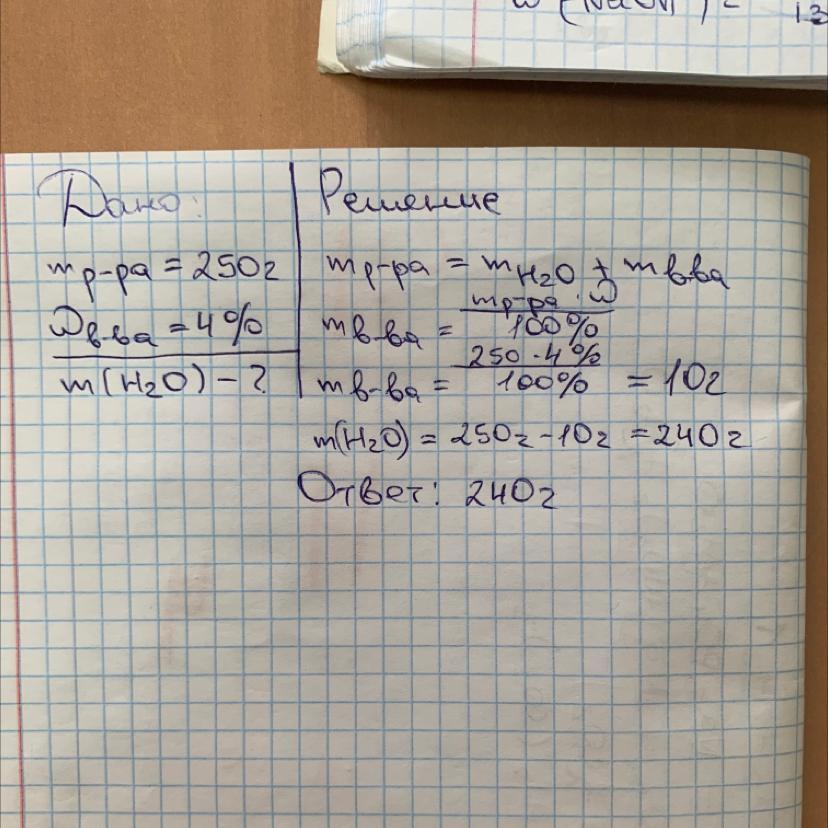 Дано:
mр-ра = 250г
ωв-ва = 4%
m(H₂O) - ?
Решение
mр-ра = mH₂O + mв-ва
mв-ва = mр-ра · ω / 100%
mв-ва = 250 · 4% / 100% = 10г
m(H₂O) = 250г - 10г = 240г
Ответ: 240г